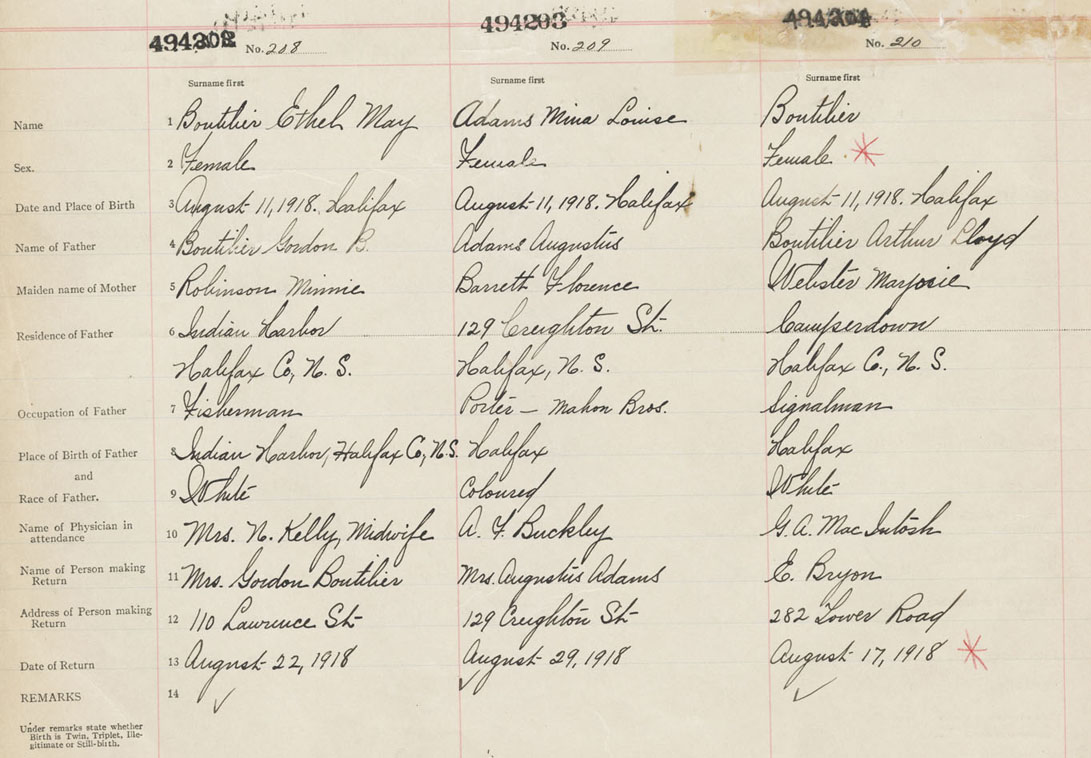 494202 494203 494204
No. 208 No. 209 No. 210
Surname first Surname first Surname first
Name 1 Boutilier Ethel May Adams Mina Louise Boutilier
Sex. 2 Female Female Female *
Date and Place of Birth 3 August 11, 1918. Halifax August 11, 1918. Halifax August 11, 1918. Halifax
Name of Father 4 Boutilier Gordon B. Adams Augustus Boutilier Arthur Lloyd
Maiden name of Mother 5 Robinson Minnie Barrett Florence Webster Marjorie
Residence of Father 6 Indian Harbor 129 Creighton St. Camperdown
Halifax Co, N. S. Halifax, N. S. Halifax Co., N. S.
Occupation of Father 7 Fisherman Porter – Mahon Bros. Signalman
Place of Birth of Father 8 Indian Harbor, Halifax Co, N.S. Halifax Halifax
and
Race of Father. 9 White Coloured White
Name of Physician in
attendance 10 Mrs. N. Kelly, Midwife A. F. Buckley G. A. MacIntosh
Name of Person making
Return 11 Mrs. Gordon Boutilier Mrs. Augustus Adams E. Bryon
Address of Person making
Return 12 110 Lawrence St 129 Creighton St 282 Tower Road
Date of Return 13 August 22, 1918 August 29, 1918 August 17, 1918 *
REMARKS 14 ✓ ✓ ✓
Under remarks state whether
Birth is Twin, Triplet, Ille-
gitimate or Still-birth.